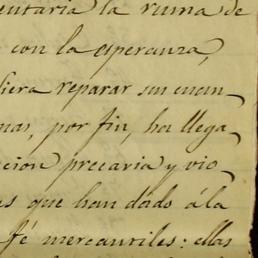 entaria la ruina de
con la esperanza,
diera reparar sin cuan
nas, por fin, ha llega
cion precaria y vio
s que han dado á la
fé mercantiles: ellas